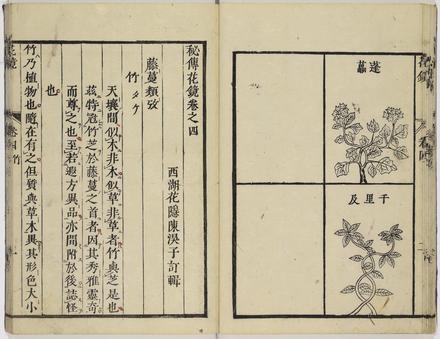 蓬藟
千里及
秘傳花鏡卷之四
西湖花隱陳淏子訂輯
藤蔓類攷
竹 タケ
天壤間似木非木似草非草者竹與芝是也
茲特冠竹芝於藤蔓之首者因其秀雅靈奇
而尊之也至若遐方異品亦間附於後誌怪
也
竹乃植物也隨在有之但質與草木異其形色大小
花鏡 卷四 竹 一